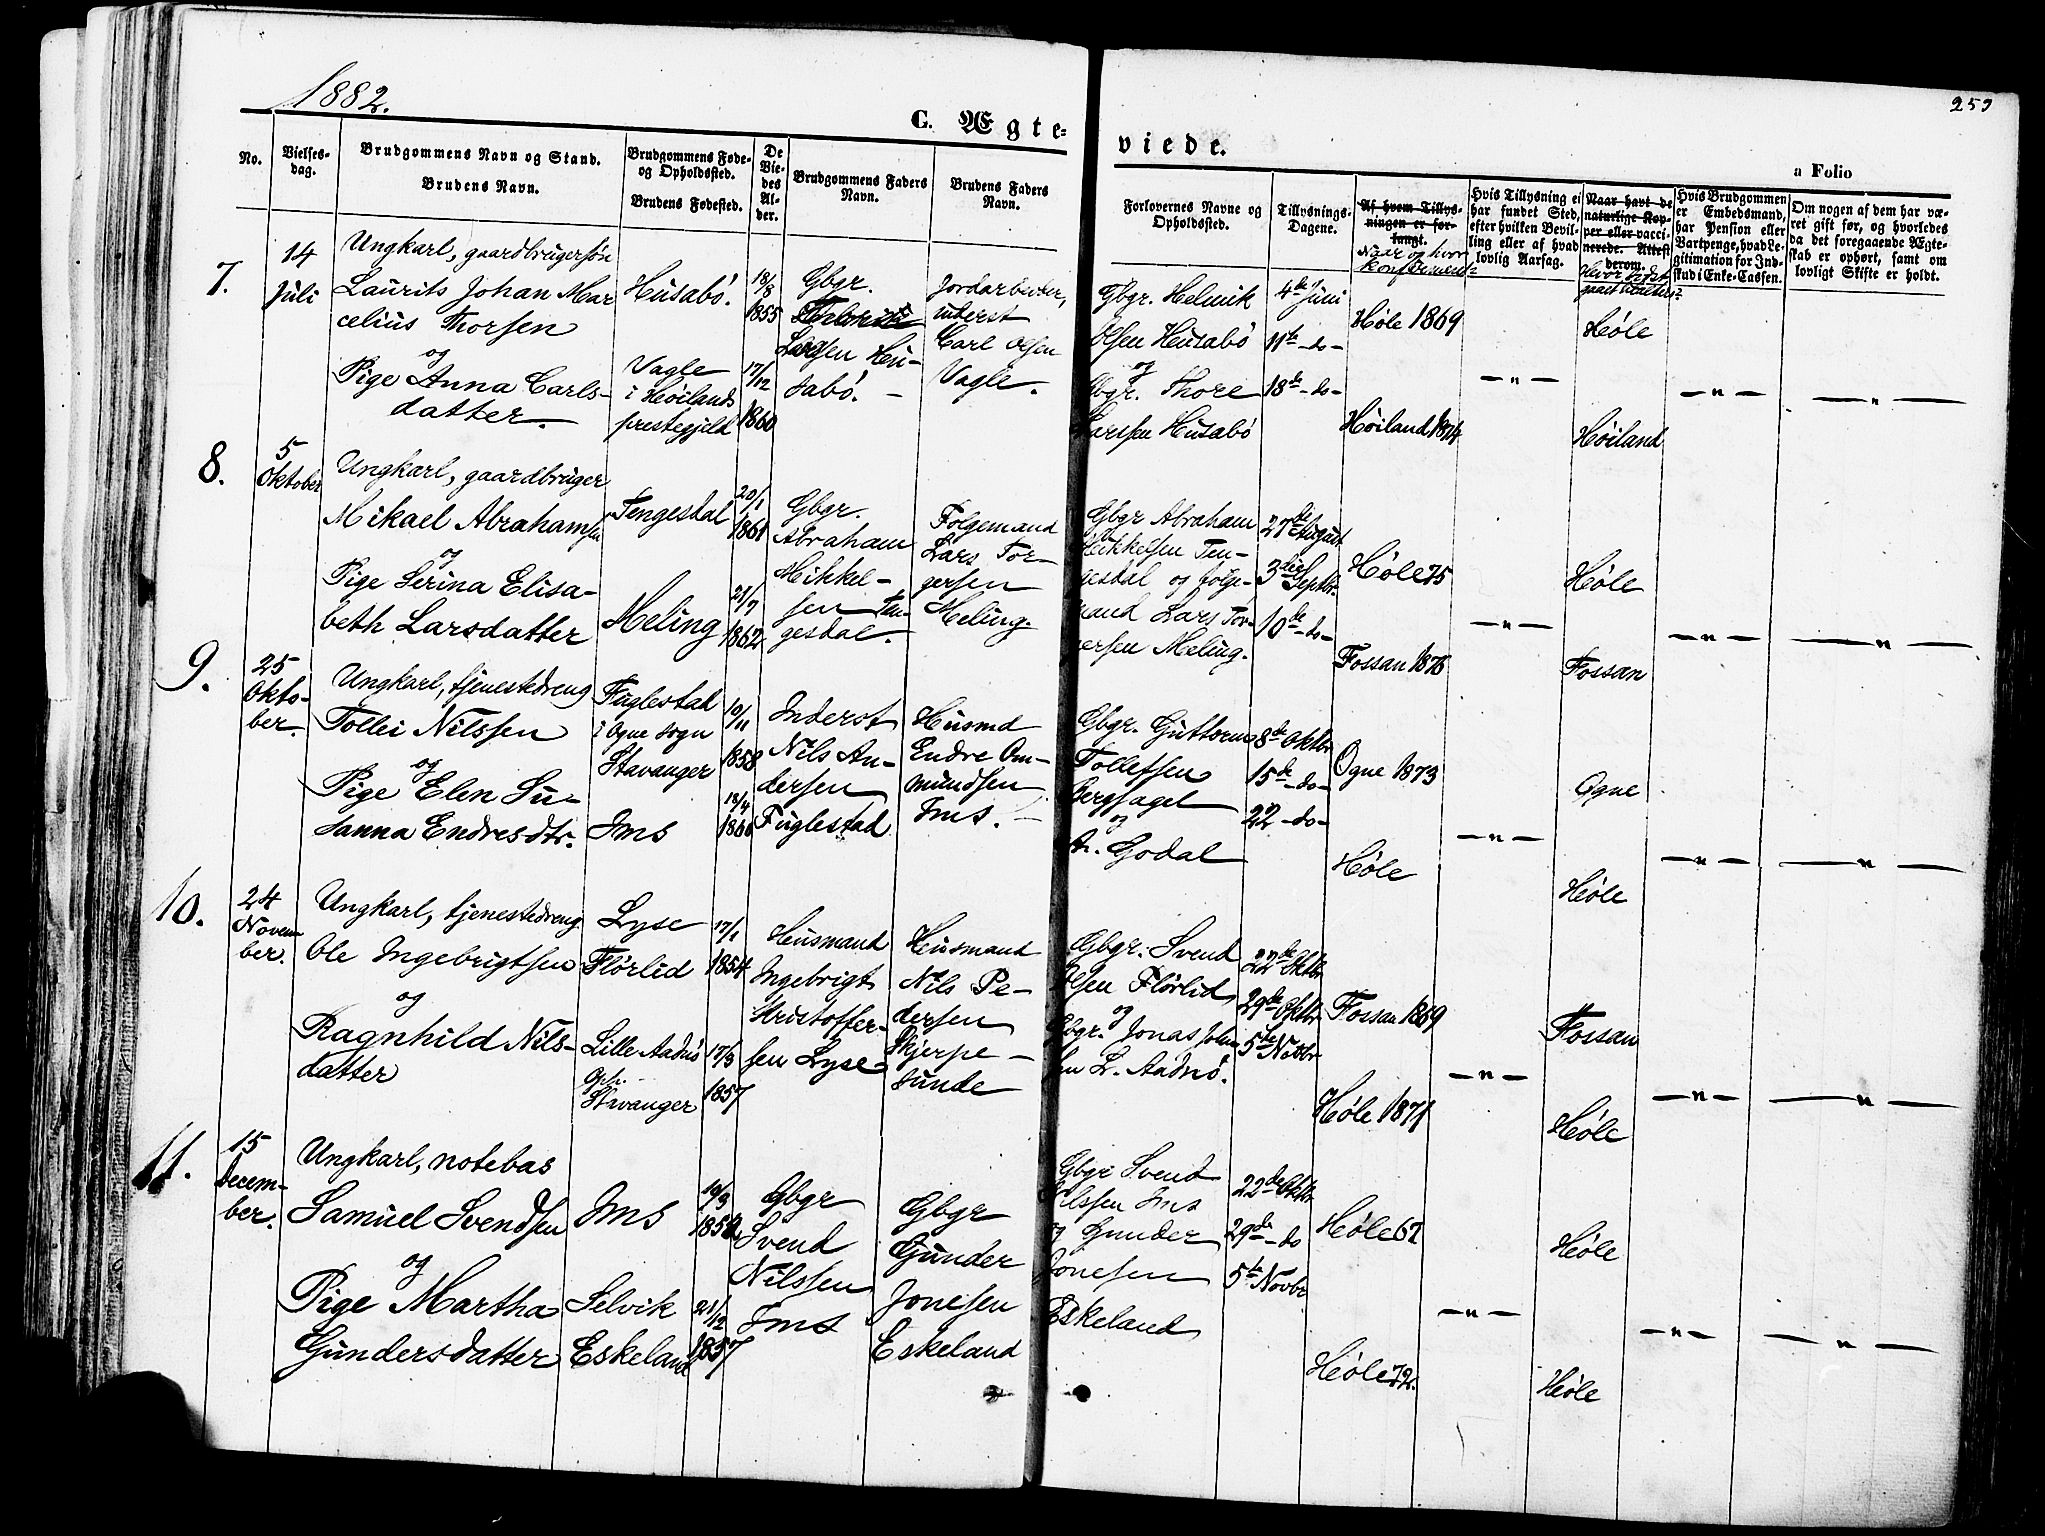 1882.
259
G. Ægte-
viede.
a Folio
No.
Vielses-
dag.
Brudgommens Navn og Stand.
Brudens Navn.
Brudgommens Føde-
og Opholdssted.
Brudens Fødested.
De
Vie-
des
Al-
der.
Brudgommens Faders
Navn.
Brudens Faders
Navn.
Forlovernes Navne og
Opholdssted.
Tillysnings-
Dagene.
Af hvem Tillys-
ningen er for-
langt.
Naar og hvor
konfirmeret?
Hvis Tillysning ei
har fundet Sted,
efter hvilken Bevil-
ling eller af hvad
lovlig Aarsag.
Naar havt de
naturlige Kop-
per eller vacci-
nerede. Attest
derom.
Hvor sidst
Hvis Brudgommen
er Embedsmand,
har Pension eller
Vartpenge, hvad Le-
gitimation for Ind-
skud i Enke-Cassen.
Om nogen af dem har væ-
ret gift før, og hvorledes
da det foregaaende Ægte-
skab er ophørt, samt om
lovligt Skifte er holdt.
7.
14
Juli
Ungkarl, gaardbrugersøn
Laurits Johan Mar
celius Thorsen
og
Pige Anna Carls-
datter.
Husabø.
Vagle
i Høilands
prestegjeld
18/8
1855
17/12
1860
Gbgr.
Larsen Hu-
sabø. -
Jordarbeider,
inderst
Carl Olsen
Vagle.
Gbgr. Helmik
Olsen Husabø
og
Gbgr. Thore
Larsen Husabø
4de Juni
11te - do -
18de - do -
Høle 1869
Høiland 1874
- " -
Høle
Høiland
- " -
- " -
8.
5
Oktober
Ungkarl, gaardbruger
Mikael Abrahamsen
og
Pige Serina Elisa-
beth Larsdatter
Tengesdal
Meling
20/1
1861
21/7
1862
Gbgr.
Abraham
Mikkel-
sen Ten-
gesdal.
Folgemand
Lars Tor-
gersen
Meling.
Gbgr Abraham
Mikkelsen Ten-
gesdal og folge-
mand Lars Tor-
gersen Meling.
27de August
3die Septbr.
10de - do -
Høle 75
Fossan 1876
- " -
Høle
Fossan
- " -
- " -
9.
25
Okto-
ber.
Ungkarl, tjenestedreng
Tollei Nilssen
og
Pige Elen Su-
sanna Endresdtr.
Fuglestad
i Ogne sogn
Stavanger
Ims
10/11
1858
Inderst
Nils An-
dersen
Fuglestad
Husmd
Endre Om-
mundsen
Ims. -
Gbgr. Guttorm
Tollefsen
Bergsagel
og
Godal
8de Oktbr
15de - do -
22 - do -
Ogne 1873
Høle
- " -
Ogne
Høle
- " -
- " -
10.
24
Novem
ber.
Ungkarl, tjenestedreng
Ole Ingebrigtsen
og
Ragnhild Nils-
datter
Lyse
Flørlid
Lille Aadnø
Oph.
Stavanger
17/1
1854
17/3
1857
Husmand
Ingebrigt
Kristoffer-
sen Lyse
Husmand
Nils Pe-
dersen
Skjerpe -
sunde
Gbgr. Svend
Olsen Flørlid
og
Gbgr. Jonas John
sen L. Aadnø.
22de Oktbr
29de Oktbr
5te Novbr
Fossan 1869
Høle 1871
- " -
Fossan
Høle
- " -
- " -
11.
15
Decem-
ber.
Ungkarl, notebas
Samuel Svendsen
og
Pige Martha
Gundersdatter
Ims
Selvik
Eskeland
19/3
21/12
1857
Gbgr
Svend
Nilssen
Ims
Gbgr
Gunder
Jonesen
Eskeland
Gbgr Svend
Nilssen Ims
og Gunder
Jonesen
Eskeland
22de Oktbr
29de - do
5te Novbr
Høle 67
Høle 72.
- " -
Høle
Høle
- " -
- " -